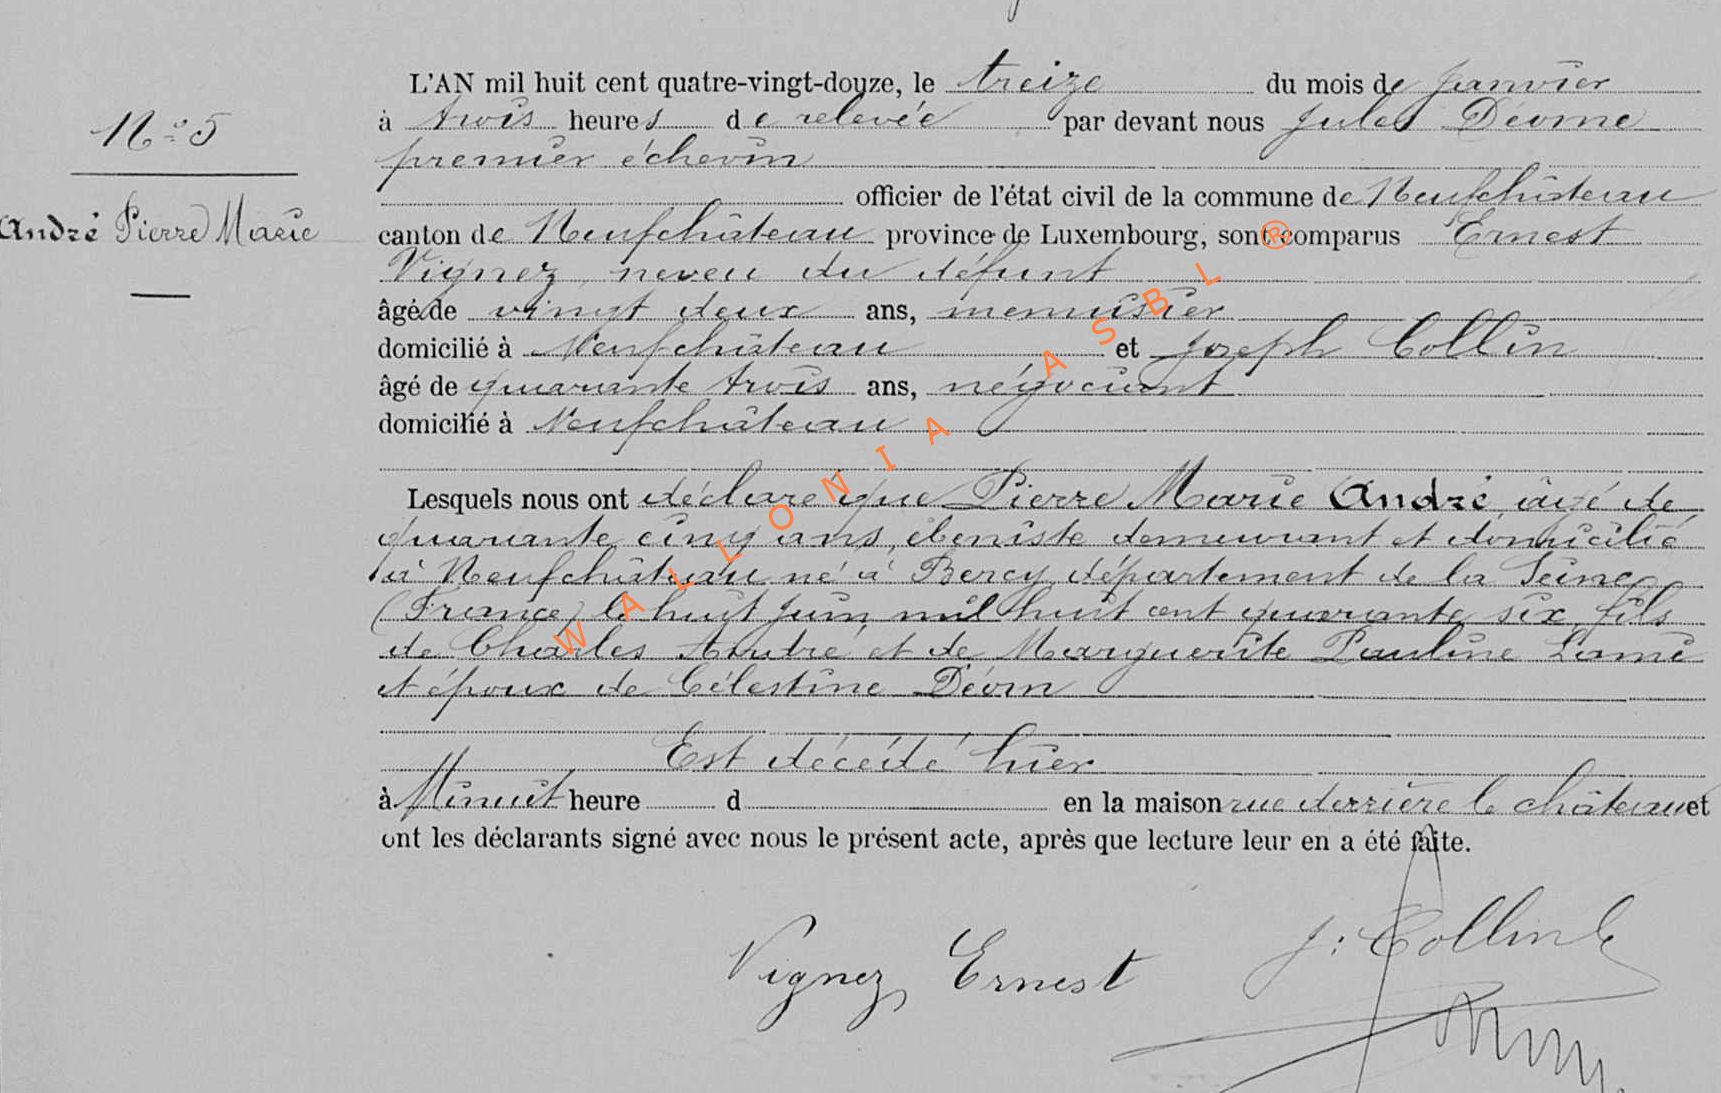 L'AN mil huit cent quatre-vingt-douze, le treize du mois de Janvier
N° 5
à trois heures de relevée par devant nous Jules Déome
premier échevin
officier de l'état civil de la commune de Neufchâteau
André Pierre Marie
canton de Neufchâteau province de Luxembourg, sont comparus Ernest
Vignez, neveu du défunt
âgé de vingt deux ans, menuisier
domicilié à Neufchâteau et Joseph Collin
âgé de quarante trois ans, négociant
domicilié à Neufchâteau
Lesquels nous ont déclaré que Pierre Marie André âgé de
quarante cinq ans, ébeniste demeurant et domicilié
à Neufchâteau né à Bercy, département de la Seine
(France) le huit Juin mil huit cent quarante six, fils
de Charles André et de Marguerite Pauline Lamé
et époux de Célestine Déom
Est décédé hier
à Minuit heure d en la maison rue derrière le château et
ont les déclarants signé avec nous le présent acte, après que lecture leur en a été faite.
Vignez Ernest J: Collin
WALLONIA ASBL ®